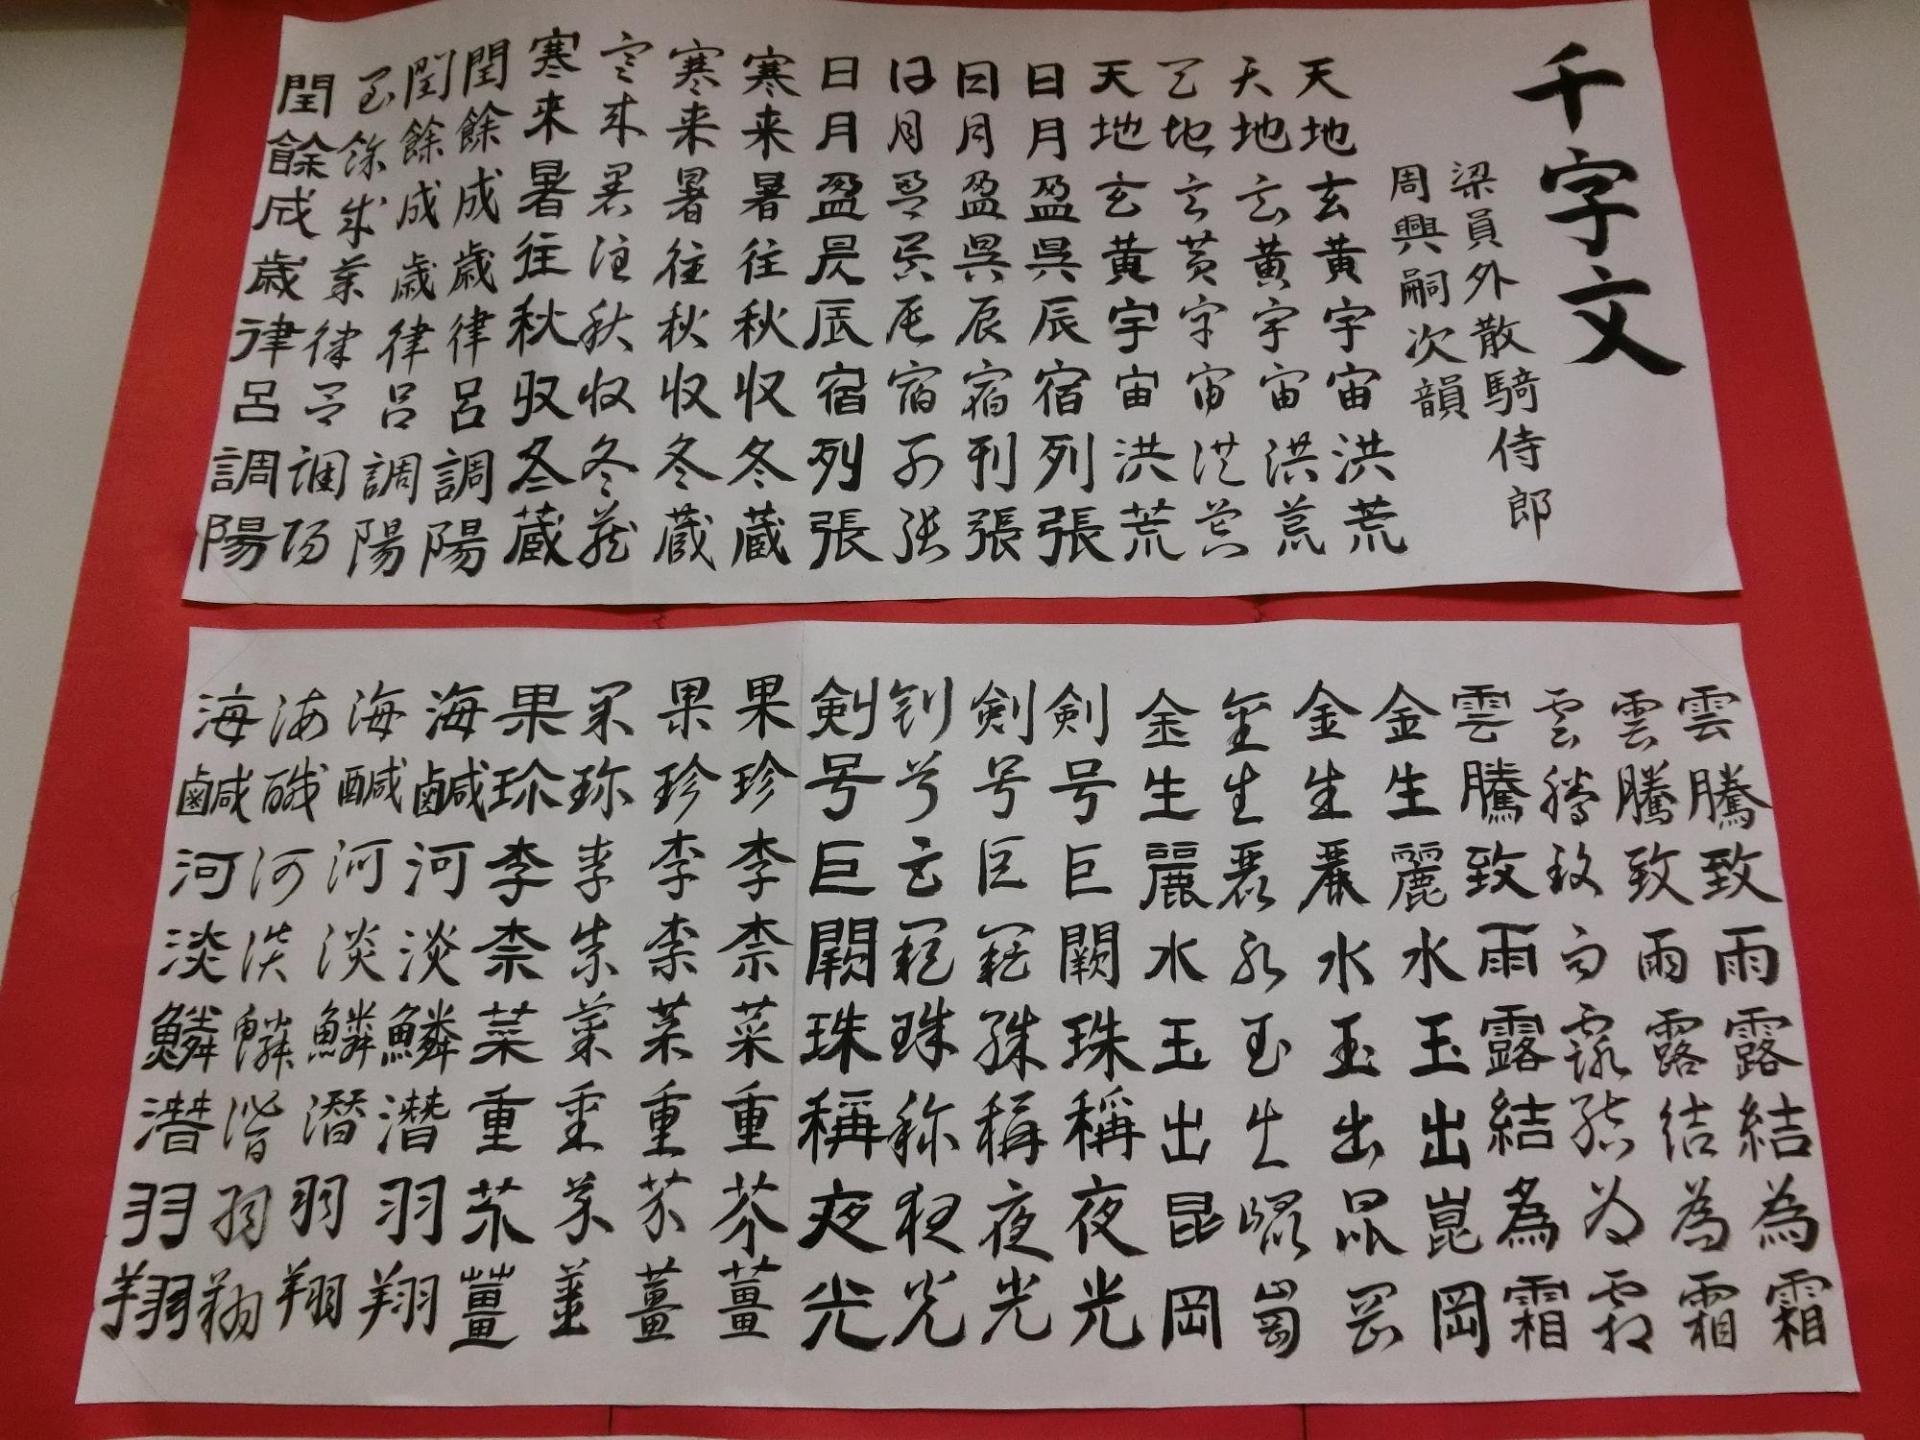 千字文
梁員外散騎侍郎
周興嗣次韻
天地玄黄宇宙洪荒
天地玄黄宇宙洪荒
天地玄黄宇宙洪荒
天地玄黄宇宙洪荒
日月盈昃辰宿列張
日月盈昃辰宿列張
日月盈昃辰宿列張
日月盈昃辰宿列張
寒来暑往秋収冬蔵
寒来暑往秋収冬蔵
寒来暑往秋収冬蔵
寒来暑往秋収冬蔵
閏餘成歳律呂調陽
閏餘成歳律呂調陽
閏餘成歳律呂調陽
閏餘成歳律呂調陽
雲騰致雨露結為霜
雲騰致雨露結為霜
雲騰致雨露結為霜
雲騰致雨露結為霜
金生麗水玉出崑岡
金生麗水玉出昆岡
金生麗水玉出崐崗
金生麗水玉出昆岡
剣号巨闕珠稱夜光
剣号巨闕珠稱夜光
剣号巨闕珠称夜光
剣号巨闕珠稱夜光
果珍李柰菜重芥薑
果珍李柰菜重芥薑
果珍李柰菜重芥薑
果珍李柰菜重芥薑
海鹹河淡鱗潜羽翔
海鹹河淡鱗潜羽翔
海鹹河淡鱗潜羽翔
海鹹河淡鱗潜羽翔